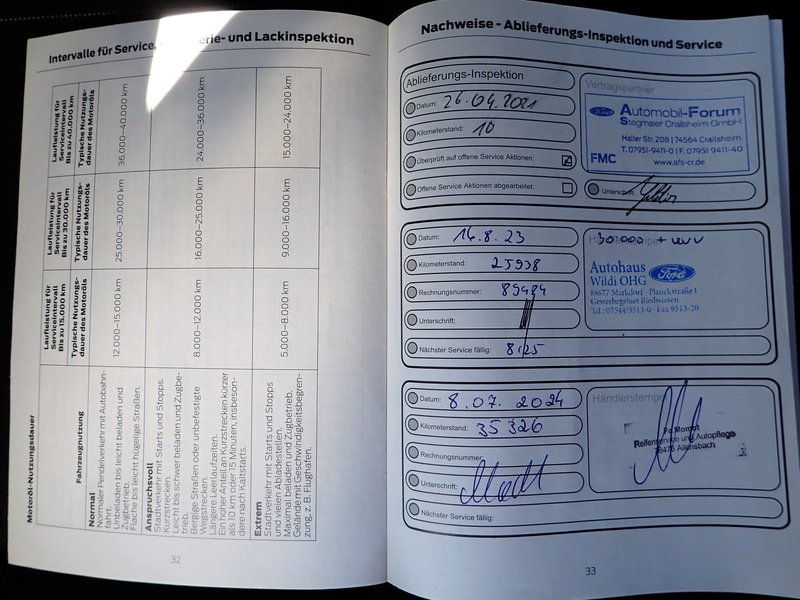 Intervalle für Service, erie- und Lackinspektion
Motoröl-Nutzungsdauer
Fahrzeugnutzung
Laufleistung für Serviceintervall Bis zu 15.000 km
Typische Nutzungsdauer des Motoröls
Laufleistung für Serviceintervall Bis zu 30.000 km
Typische Nutzungsdauer des Motoröls
Laufleistung für Serviceintervall Bis zu 40.000 km
Typische Nutzungsdauer des Motoröls
Normal
Normaler Pendelverkehr mit Autobahnfahrt.
Unbeladen bis leicht beladen und Zugbetrieb.
Flache bis leicht hügelige Straßen.
12.000–15.000 km
25.000–30.000 km
36.000–40.000 km
Anspruchsvoll
Stadtverkehr mit Starts und Stopps.
Kurzstrecken.
Leicht bis schwer beladen und Zugbetrieb.
Bergige Straßen oder unbefestigte Wegstrecken.
Längere Leerlaufzeiten.
Ein hoher Anteil an Kurzstrecken kürzer als 10 km oder 15 Minuten, insbesondere nach Kaltstarts.
8.000–12.000 km
16.000–25.000 km
24.000–36.000 km
Extrem
Stadtverkehr mit Starts und Stopps und vielen Abladestellen.
Maximal beladen und Zugbetrieb.
Gelände mit Geschwindigkeitsbegrenzung, z. B. Flughäfen.
5.000–8.000 km
9.000–16.000 km
15.000–24.000 km
32
Nachweise - Ablieferungs-Inspektion und Service
Ablieferungs-Inspektion
Datum: 26.04.2021
Kilometerstand: 10
Überprüft auf offene Service Aktionen:
Offene Service Aktionen abgearbeitet:
Vertragspartner
Ford Automobil-Forum
Stegmaier Crailsheim GmbH
Haller Str. 208 | 74564 Crailsheim
T. 07951-9411-0 | F. 07951 9411-40
FMC www.afs-cr.de
Unterschrift:
Datum: 14.8.23
Kilometerstand: 25938
Rechnungsnummer: 89484
Unterschrift:
Nächster Service fällig: 8.25
30.000 +
Autohaus Ford
Wildi OHG
88677 Markdorf · Planckstraße 1
Gewerbegebiet Riedwiesen
Tel.: 07544/9513-0 · Fax 9513-20
Datum: 8.07.2024
Kilometerstand: 35326
Rechnungsnummer
Unterschrift:
Nächster Service fällig:
Händlerstempel
Fa. Momot
Reifenservice und Autopflege
78476 Allensbach
33